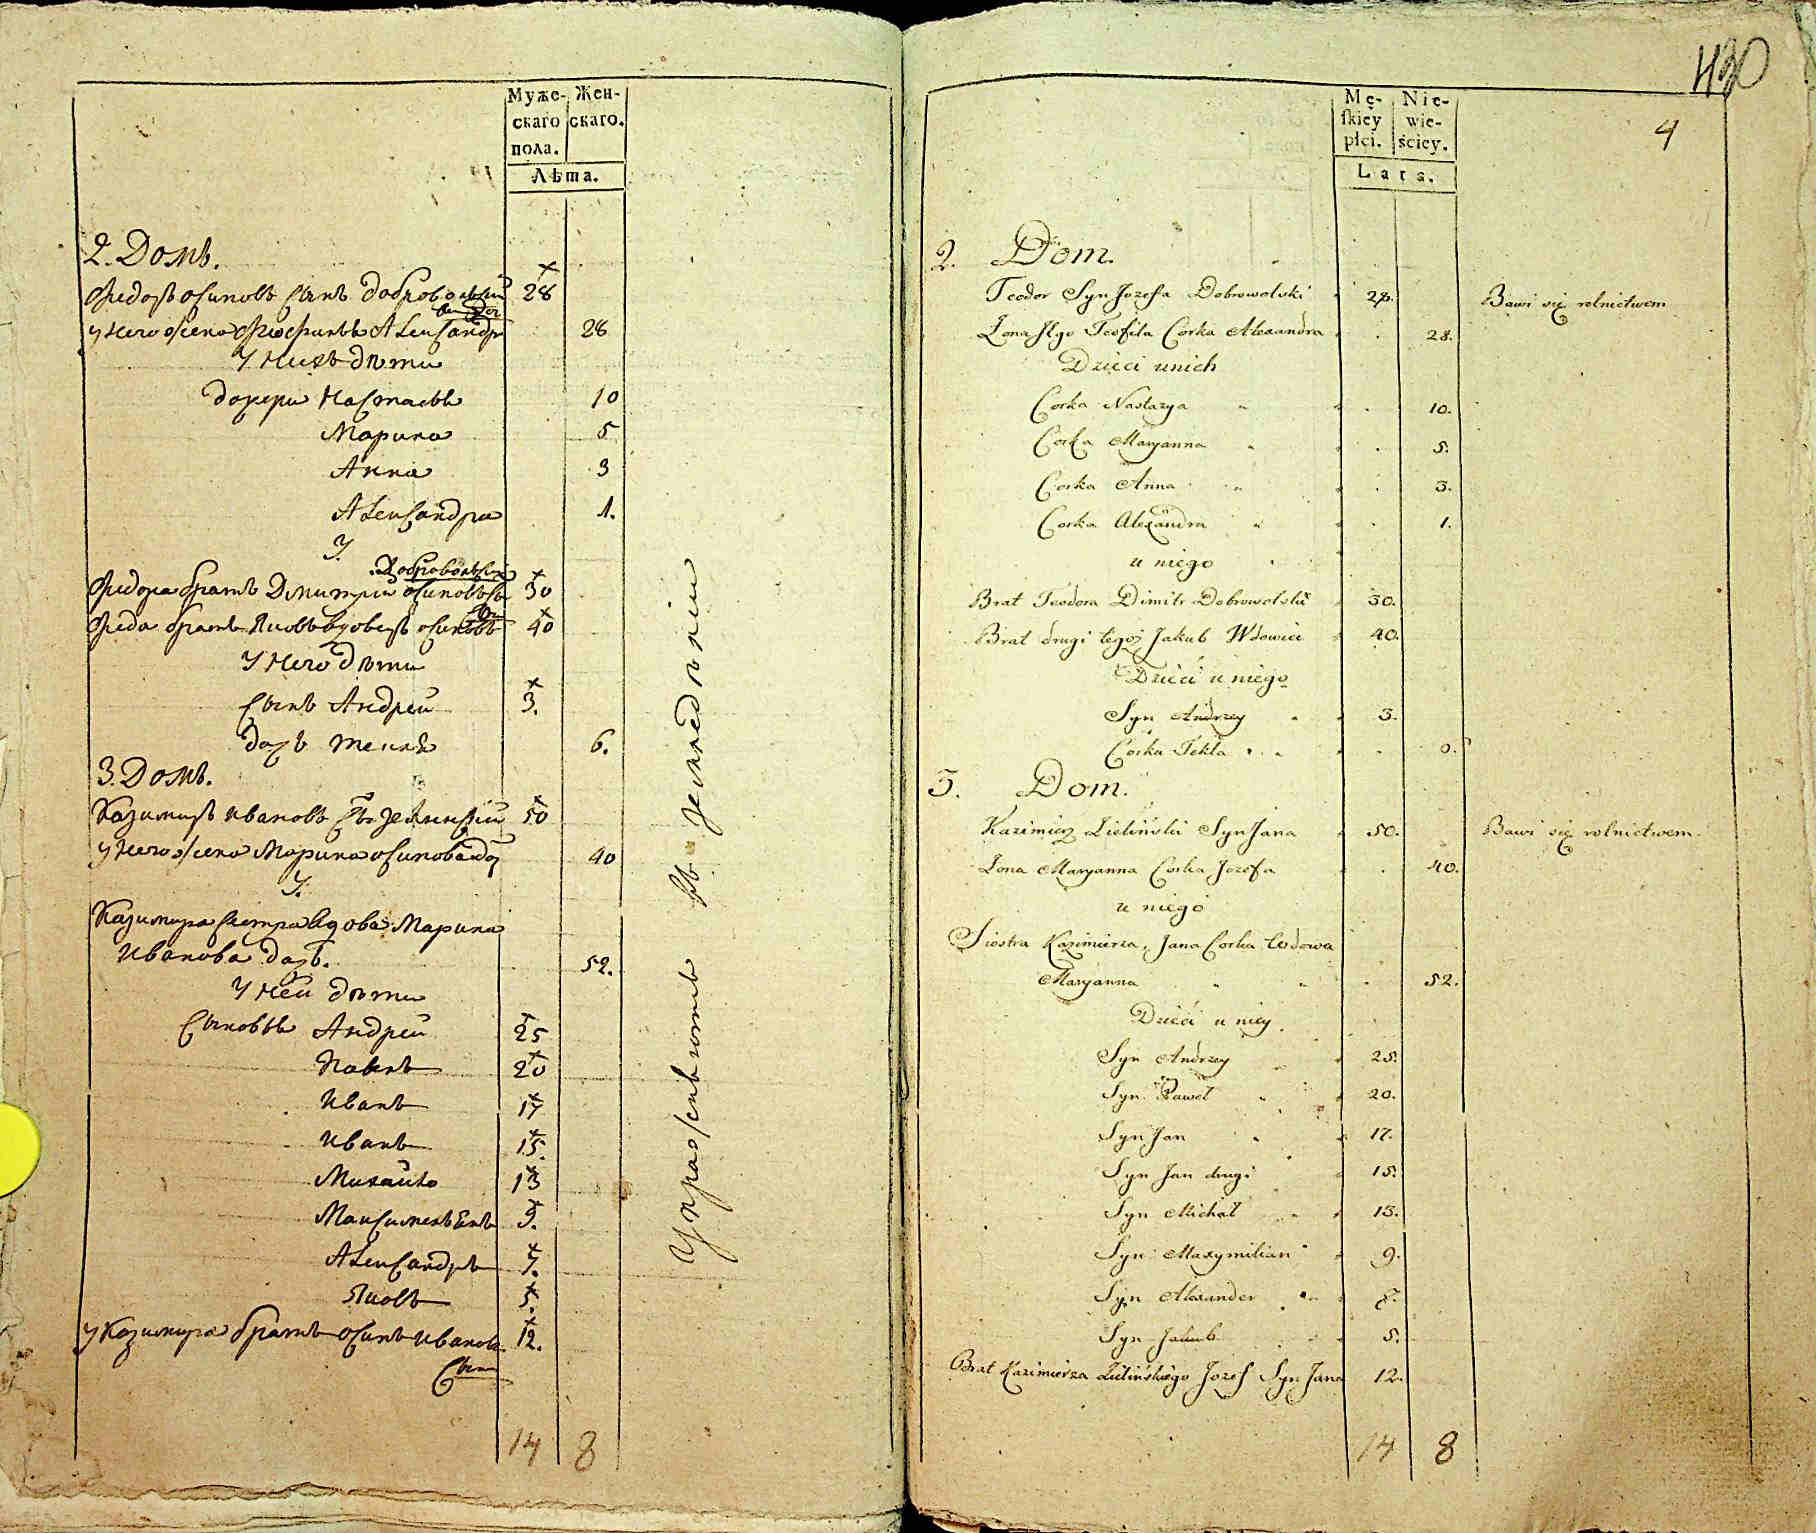 Муже-
скаго
пола.
Жен-
скаго.
Лѣта.
2. Домъ.
Федоръ осиповъ сынъ Добровольскій 28
у него жена Теофилія Александр 28
У нихъ дѣти
дочери Настасья 10
Марина 5
Анна 3
Александра 1.
У.
Добровольскій
Федора братъ Дмитрій осиповъ 30
Феда братъ Яковъ вдовецъ осиповъ 40
У него дѣти
сынъ Андрей 3.
дочь Текля 6.
3. Домъ.
Казимиръ Ивановъ съ Зелинскій 50
у него жена Марина осипова 40
У.
Казимира сестра вдова Марина
Иванова дочь. 52.
У ней дѣти
сыновья Андрей 25
Павелъ 20
Иванъ 17
Иванъ 15.
Михайло 13
Максимиліанъ 9.
Александръ 7.
Яковъ 5.
У Казимира братъ осипъ Иванов 12.
сынъ
14 8
Упражненіе въ земледѣліи
430
4
Mę-
ſkiey
płci.
Nie-
wie-
ściey.
Lata.
2. Dom.
Teodor Syn Jozefa Dobrowolski 28. Bawi się rolnictwem
Żona Jego Teofila Corka Alexandra 28.
Dzieci u nich
Corka Nastazya 10.
Corka Maryanna 5.
Corka Anna 3.
Corka Alexandra 1.
u niego
Brat Teodora Dimitr Dobrowolski 30.
Brat drugi tegoż Jakub Wdowiec 40.
Dzieci u niego
Syn Andrzey 3.
Corka Tekla 6.
3. Dom.
Kazimierz Zieliński Syn Jana 50. Bawi się rolnictwem.
Żona Maryanna Corka Jozefa 40.
u niego
Siostra Kazimierza, Jana Corka Wdowa
Maryanna 52.
Dzieci u niey
Syn Andrzey 25.
Syn Paweł 20.
Syn Jan 17.
Syn Jan drugi 15.
Syn Michał 13.
Syn Maxymilian 9.
Syn Alexander 7.
Syn Jakub 5.
Brat Kazimierza Zielińskiego Jozef Syn Jana 12.
14 8